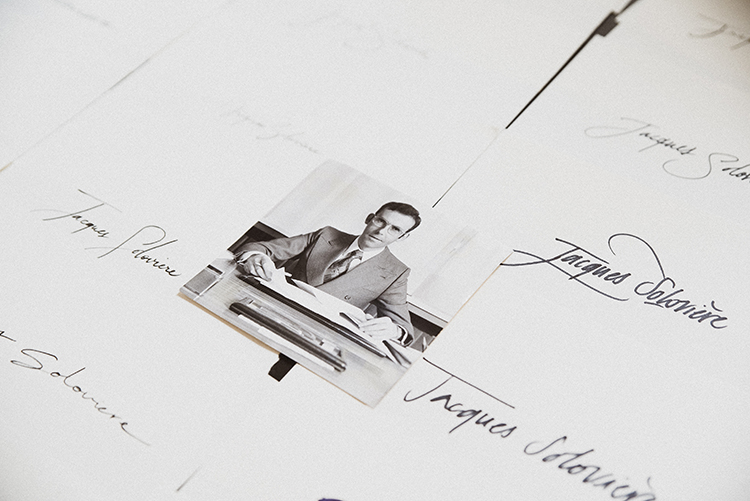 Jacques Solovière
Jacques Solov
Jacques Solovière
Jacques Solovière
Solovière
Jacques Solovière